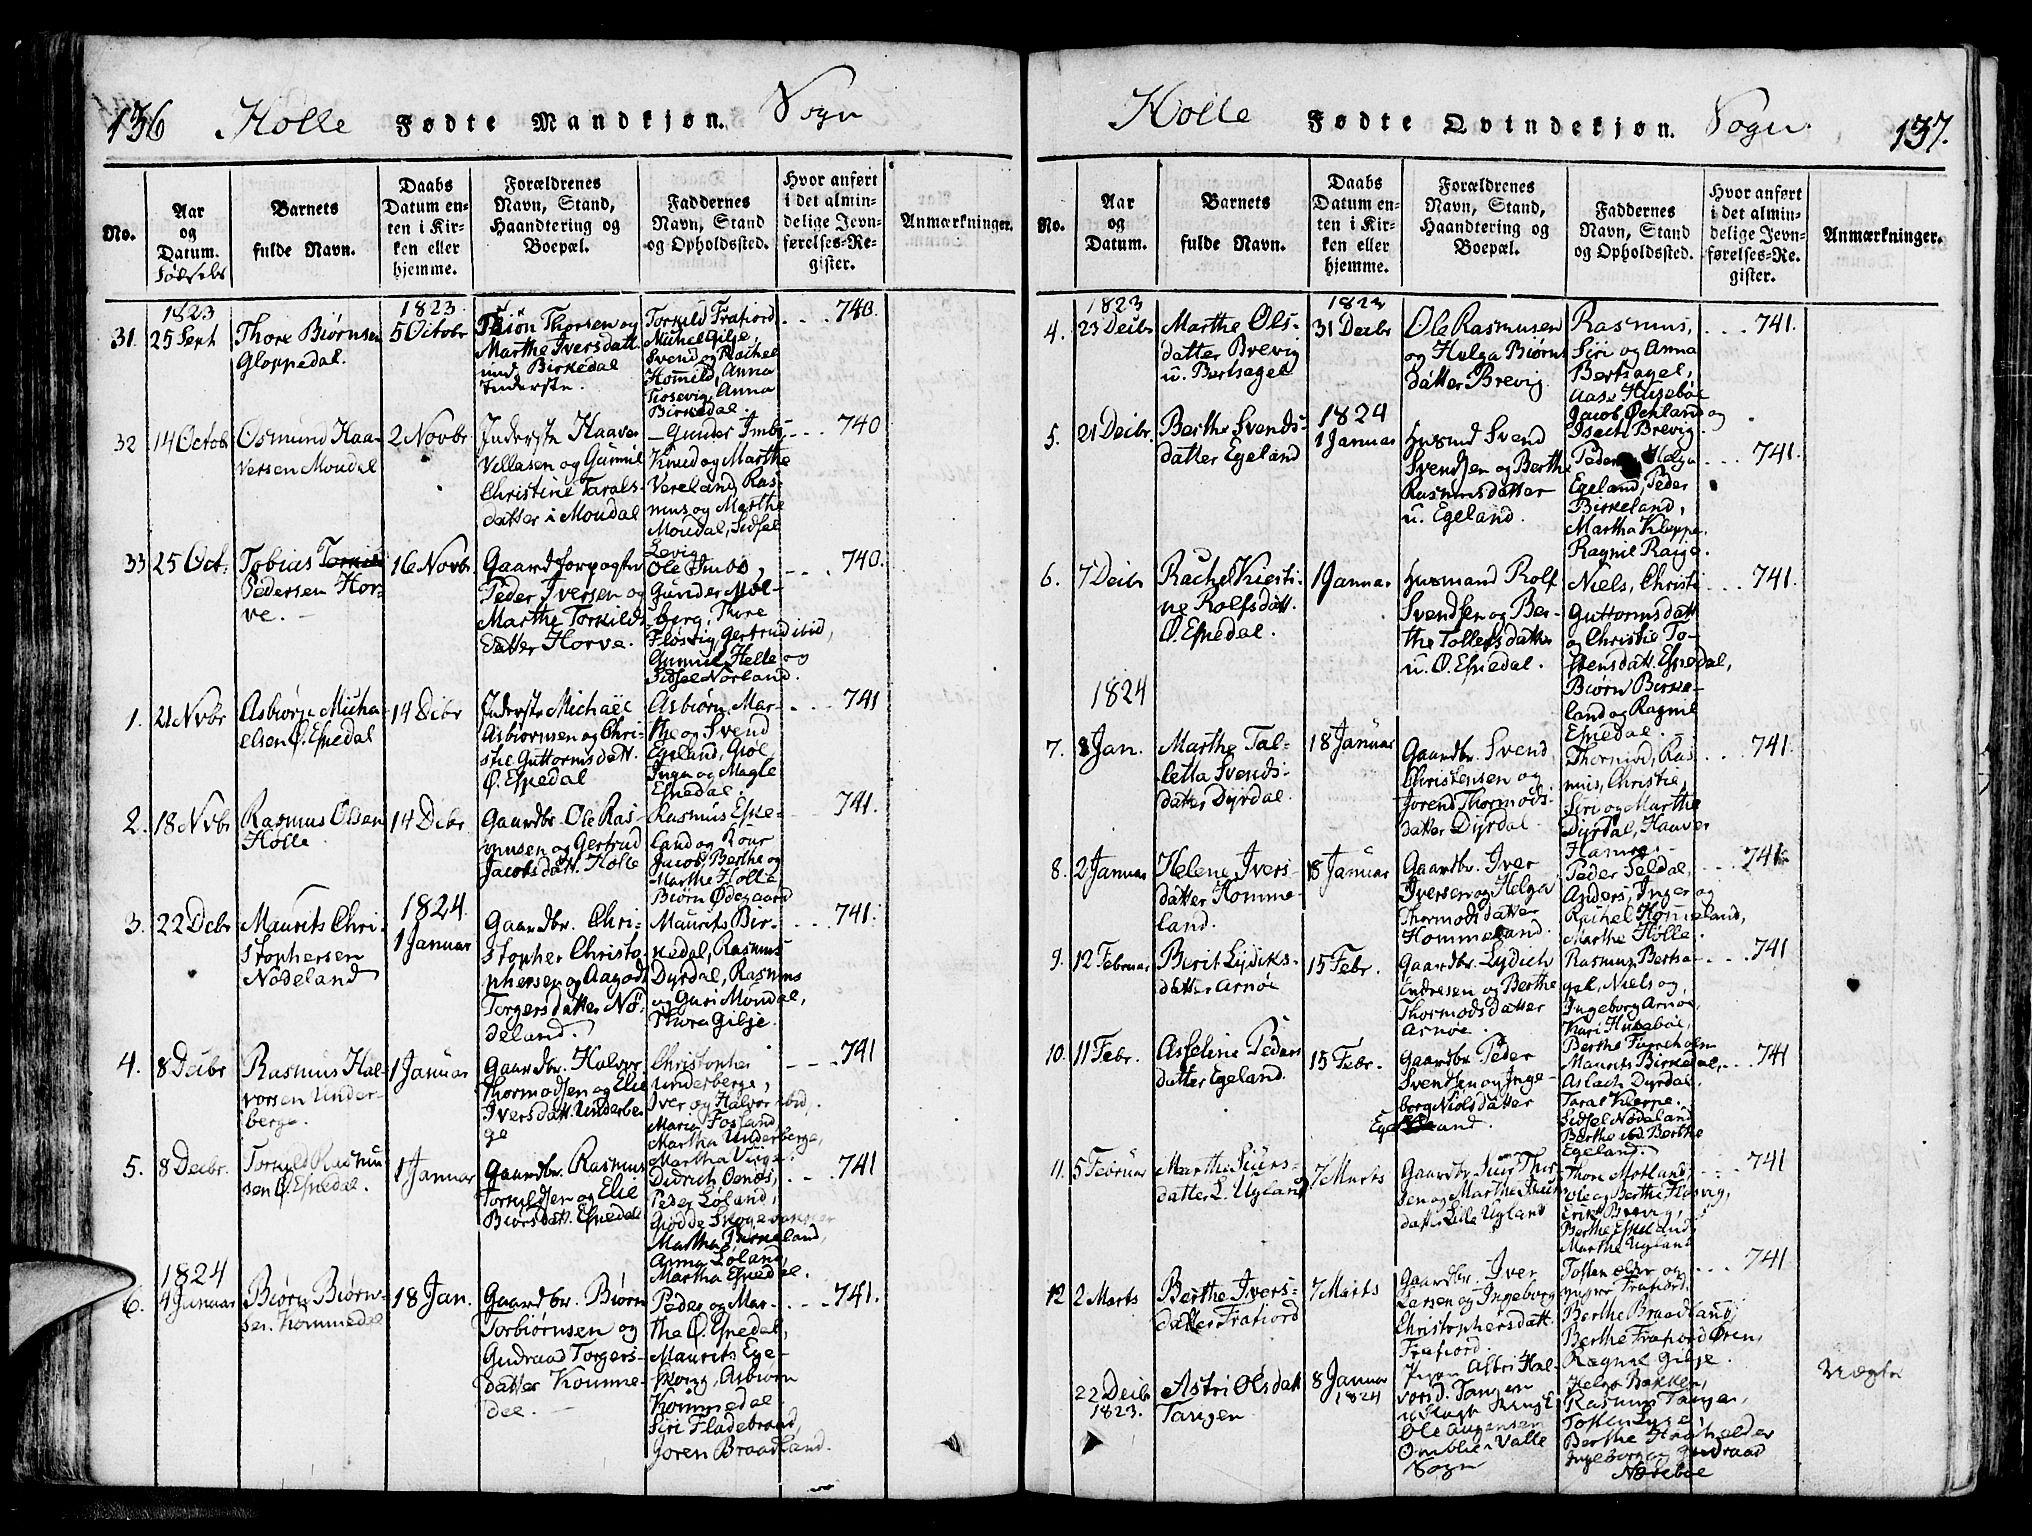 136 Holle Fødte Mandkjøn. Sogn
No.
Aar og Datum.
Fødsels
Barnets fulde Navn.
Daabs Datum enten i Kirken eller hjemme.
Forældrenes Navn, Stand, Haandtering og Boepæl.
Faddernes Navn, Stand og Opholdssted.
Hvor anført i det almindelige Jevnførelses-Register.
Anmærkninger.
1823
31. 25 Sept
Thore Biørnsen
Gloppedal.
1823
5 Octobr
Thorsen og
Marthe Iversdatt.
Birkedal
Inderste.
Torkild Frafiord,
Michel Gilje,
Svend og Rachel
Hommeld, Anna
Tiosevig, Anna
Birkedal.
740.
32 14 Octob
Osmund Haa-
versen Moudal
2 Novbr
Inderste Haaver
Villasen og Gunnil
Christine Tarals-
datter i Moudal
Gunder Imbs
Knud og Marthe
Vereland, Ras-
mus og Marthe
Moudal, Sidsel
Levig.
740
33 25 Oct.
Tobias
Pedersen Hor-
ve.
16 Novbr.
Gaardforpagter
Peder Iversen og
Marthe Torkilds-
datter Horve.
Ole Imbs,
Gunder Mol-
berg, Thore
Fløsvig, Gertrud ibid,
Gunnil Helle og
Sidsel Norland.
740.
1. 21 Nvbr
Asbiørn Micha-
elsen Ø. Espedal
14 Dcbr
Inderste Michael
Asbiørnsen og Chri-
stie Guttormsdatt.
Ø. Espedal
Asbiørn, Mar-
the og Svend
Egeland, Gioe,
Inga og Magle
Espedal.
741
2. 18 Nvbr
Rasmus Olsen
Holle.
14 Dcbr
Gaardbr. Ole Ras-
musen og Gertrud
Jacobsdatt. Holle
Rasmus Espe-
land og Kour
Jacob, Berthe og
Marthe Holle
Biørn Ødegaard
741.
3. 22 Dcbr
Maurits Chri-
stophersen
Nødeland
1824.
1 Januar
Gaardbr. Chri-
stopher Christo-
phersen og Aagodt
Torgersdatter Nø-
deland.
Maurits Bir-
kedal, Rasmus
Dyrdal, Rasmus
og Guri Moudal,
Thora Gilje.
741.
4. 8 Decbr
Rasmus Hal-
vorsen Under-
berge.
1 Januar
Gaardbr. Halvor
Thormodsen og Elie
Iversdatt. Underber
ge
Christopher
Underberge,
Iver og Halvor ibid,
Maria Fosland,
Martha Underberge,
Martha Vasge.
741
5. 8 Decbr.
Torkild Rasmu
sen Ø. Espedal.
1 Januar
Gaardbr. Rasmus
Torkildsen og Elie
Biørsdatt. Espedal
Didrich Oenæs,
Peder Løland,
Martha Birkeland,
Anna Løland,
Martha Espedal.
741
1824
6. 4 Januar
Biørn Biørn-
sen Kommedal
18 Jan.
Gaardbr. Biørn
Torbiørnsen og
Gudraad Torgers-
datter Komme-
dal.
Peder og Mar-
the Ø. Espedal,
Maurits Ege-
skog, Asbiørn
Kommedal
Siri Fladebraad,
Joren Braadland.
741.
Holle Fødte Qvindekjøn. Sogn. 137.
No.
Aar og Datum.
Barnets fulde Navn.
Daabs Datum enten i Kirken eller hjemme.
Forældrenes Navn, Stand, Haandtering og Boepæl.
Faddernes Navn, Stand og Opholdssted.
Hvor anført i det almindelige Jevnførelses-Register.
Anmærkninger.
1823
4. 23 Decbr
Marthe Ols-
datter Brevig
u. Bertsagel
1823
31 Decbr
Ole Rasmusen
og Helga Biørns
datter Brevig.
Rasmus,
Siri og Anna
Bertsagel,
Aase Husebøe
Jacob Øchland og
Isach Brevig.
741.
5. 21 Decbr.
Berthe Svends-
datter Egeland
1824
1 Januar
Husmd Svend
Svendsen og Berthe
Rasmusdatter
u. Egeland.
Peder Helga
Egeland, Peder
Birkeland,
Martha Kleppe.
Ragnil Raige.
741.
6. 7 Decbr
Rachel Kiesti-
ne Rolfsdatt.
Ø. Espedal.
1 Januar
Husmand Rolf
Svendsen og Ber-
the Tollefsdatter
u. Ø. Espedal.
Niels, Christi
Guttormsdatt
og Christie To-
stensdatt. Espedal,
Biørn Birke-
land og Ragnil
Espedal.
741.
1824
7. 8 Jan.
Marthe Tal-
letta Svends-
datter Dyrdal.
18 Januar
Gaardbr. Svend
Christensen og
Jorend Thormods-
datter Dyrdal.
Thormod, Ras
mus, Christie,
Siri og Marthe
Dyrdal, Haaver
Hamre.
741.
8. 2 Januar
Helene Ivers-
datter Homme-
land.
18 Januar
Gaardbr. Iver
Iversen og Helga
Thormodsdatter
Hommeland.
Peder Seldal,
Anders, Inger og
Rachel Hommeland,
Marthe Holle.
741.
9. 12 Februar
Birit Lydiks-
datter Arnøe
15 Febr.
Gaardbr. Lydich
Endresen og Berthe
Thormodsdatter
Arnøe.
Rasmus Bertsa-
gel, Niels og
Ingeborg Arnøe,
Kari Husebøe,
Berthe
741
10. 11 Febr.
Asseline Peders
datter Egeland.
15 Febr.
Gaardbr. Peder
Svendsen og Inge-
borg Nielsdatter
Egeland.
Maurits Birkedal,
Aslach Dyrdal.
Taral Kleppe.
Sidsel Nødeland
Berthe ibd. Berthe
Egeland.
741
11. 5 Februar
Martha Siurs-
datter L. Ugland
7 Marts
Gaardbr. Siur Thor
sen og Marthe
datter Lille Ugland
Thore Motland,
Ole og Berthe Fløsvig,
Erik Brevig,
Berthe Espeland
Marthe Ugland
741
12 2 Marts
Berthe Ivers-
datter Frafiord
7 Marts
Gaardbr. Iver
Larsen og Ingeborg
Christophersdatt.
Frafiord.
Tosten ældre og
yngre Frafiord.
Berthe Braadland,
Berthe Frafiord Øren,
Ragnil Gilje.
741
22 Decbr
1823.
Astri Olsdatt
Tangen
8 Januar
1824
Pigen Astri Hal-
vorsd. Tangen
Ole Augensen
Omblie Valle
Sogn
Helge Bakken,
Rasmus Tangen,
Tosten Lyse
Berthe Haaheller
Ingeborg og Gudraad
Nesebøe
Uægte